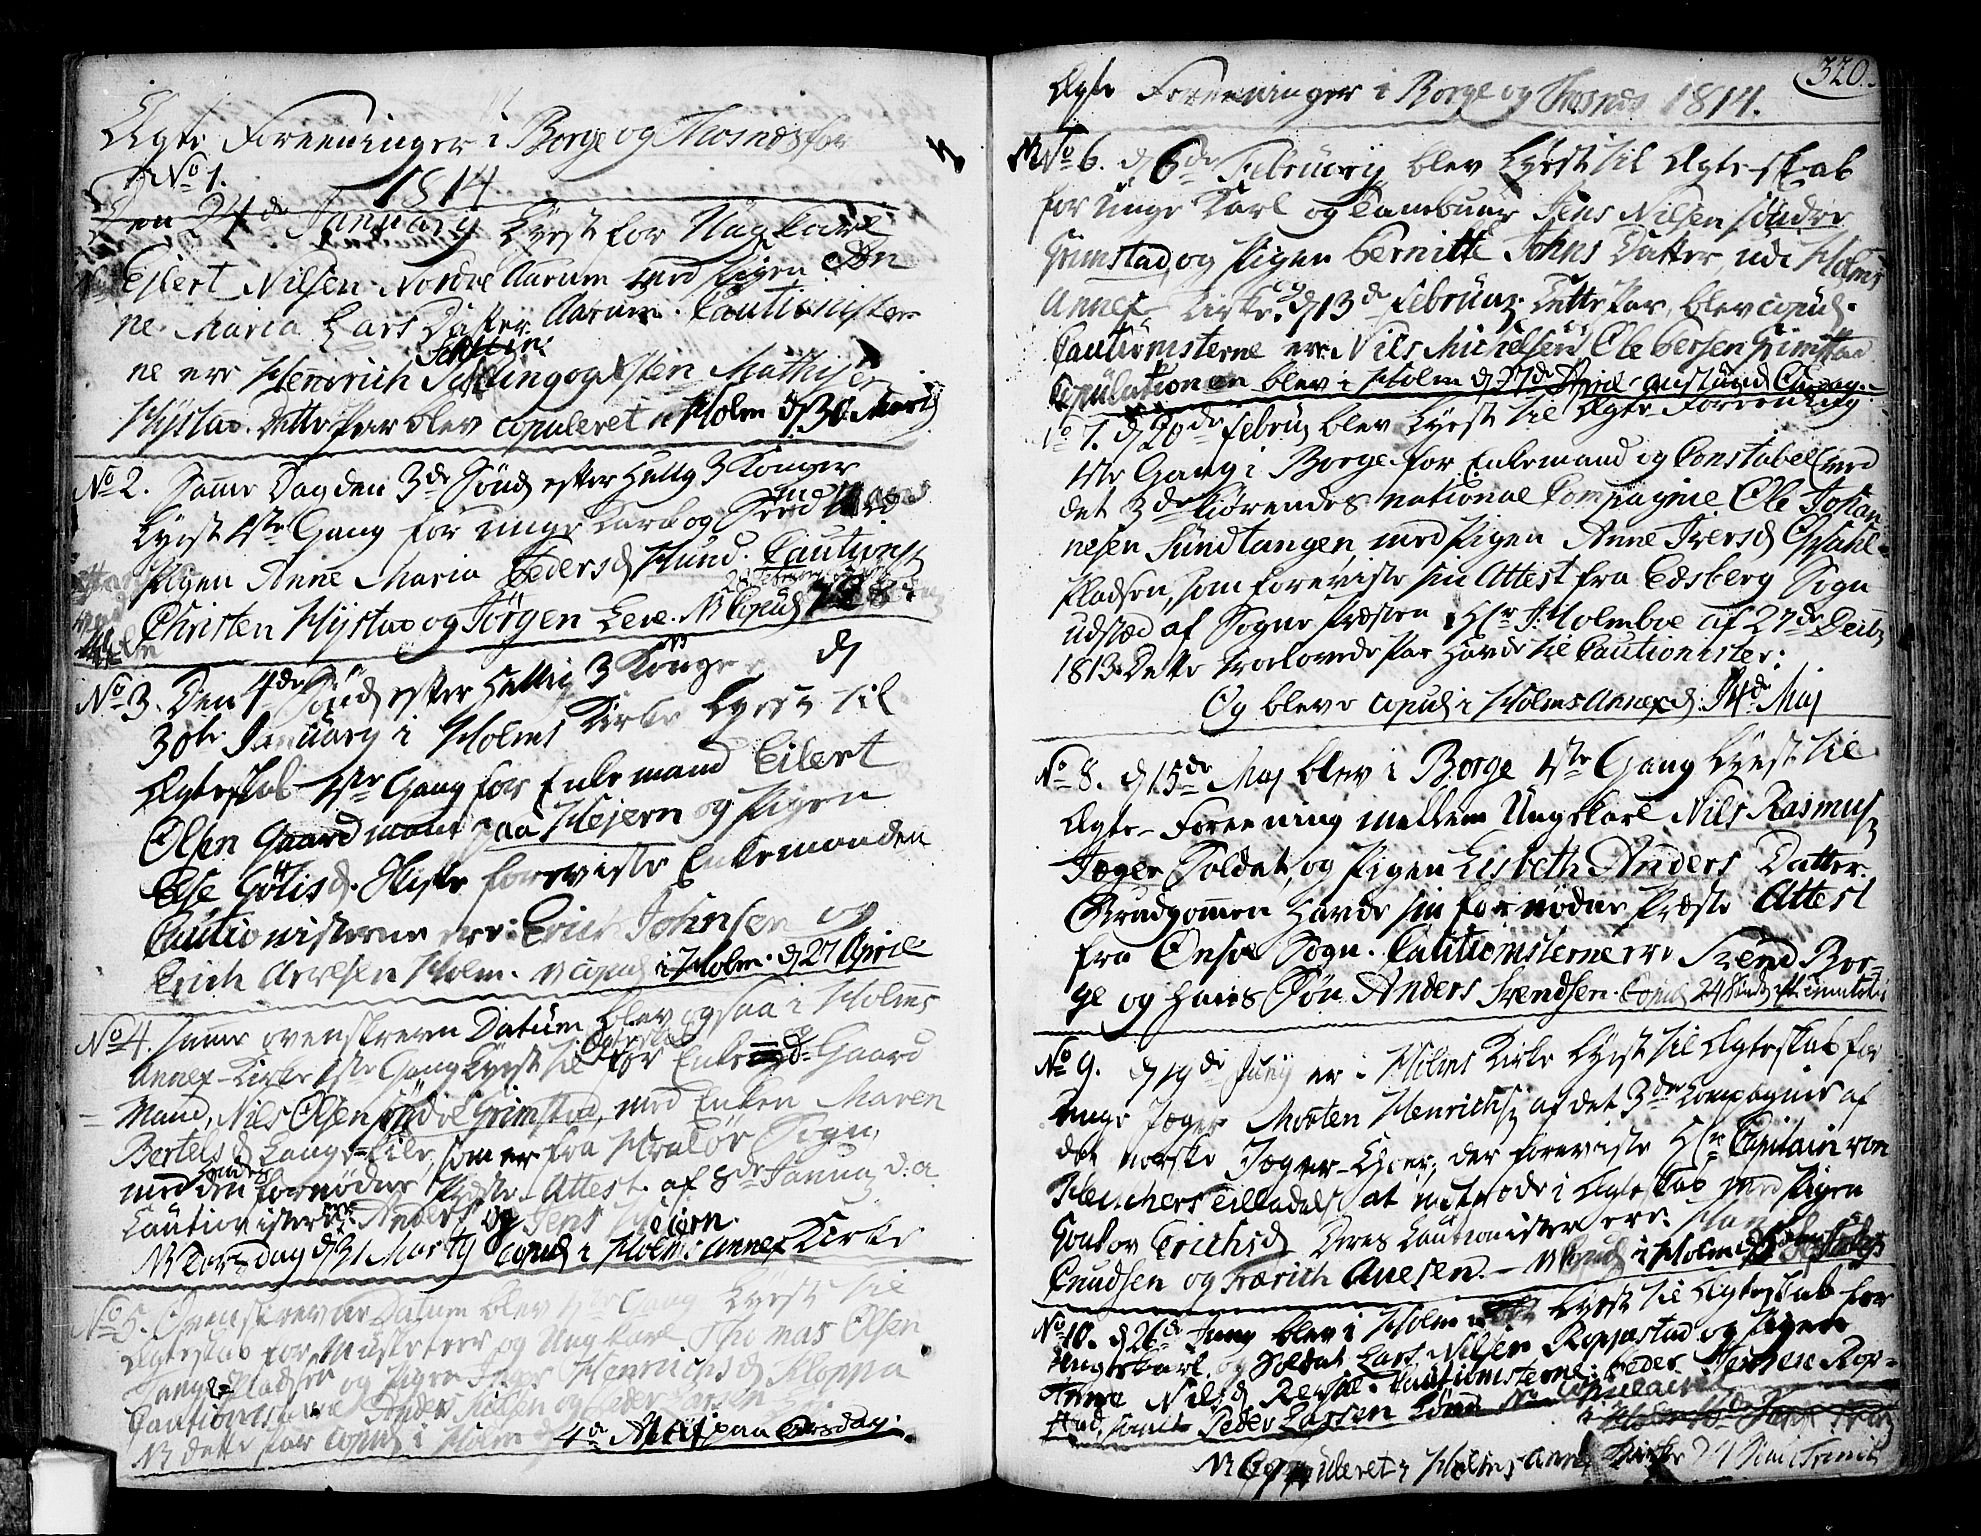 Ægte Foreeninger i Borge og Thorsnæs for
1814
No 1.
Den 24de January Lyest for Ungkarl
Eilert Nilsen Nordre Aarum med Pigen An
ne Maria Lars Datter Aarum. Cautionister
ne ere Henrich og Sten Mathisen
Hystad. Dette Par blev copuleret i Holm d 30 Marty
No 2. Samme Dag den 3de Sønd efter Hellig 3 Konger
Lyest 1ste Gang for unge Karl og
Pigen Anne Maria Pedersd Hund. Cautionz
Christen Hystad og Jørgen Lere. NB Copul
No 3. Den 4de Sønd efter Hellig 3 Konger d
30te January i Holms Kirke Lyest til
Ægteskab 1ste Gang for Enkemand Eilert
Olsen Gaardmand paa Hejern og Pigen
Else Gølisd. Skifte foreviiste Enkemanden
Cautionisterne ere: Erich Johnsen og
Erich Arvesen Holm. NB Copul i Holm d 27 April
No 4. Samme ovenskrevne Datum blev ogsaa i Holms
Annex-Kirke 1ste Gang Lyest til Ægteskab for Enkemd Gaard
Mand, Nils Olsen søndre Grimstad, med Enken Maren
Bertelsd Lange-Kile, som er fra Hvaløe Sogn,
med den fornødne Præste-Attest af 8de Januaz d: a.
Cautionister ere Anders og Jens Hejern.
NB Torsdag d 31 Marty Copul i Holms Annex Kirke
No 5. Ovenskrevne Datum blev 1ste Gang Lyest til
Ægteskab for Musketeer og Ungkarl Thomas Olsen
Tange-Pladsen og Pigen Inger Henrichsd Kloppa
Cautionisterne Anders Nilsen og Peder Larsen
NB dette Par Copul i Holm d 4de April paa Torsdag.
320.
Ægte Foreeninger i Borge og Thorsnæs 1814.
No 6. d 6de February blev Lyest til Ægteskab
for Unge Karl og Tambuur Jens Nilsen søndre
Grimstad, og Pigen Bernitte Johns Datter, udi Holms
Annex-Kirke. d 13de Februaz Dette Par, blev copul.
Cautionisterne ere Nils Michelsen, Ole Bersen Grimstad
Copulationen blev i Holm d 27de April
No 7. d 20de Februz blev Lyest til Ægte Foreening
1ste Gang i Borge for Enkemand og Constabel ved
det 3de kiørendes national Compagnie Ole Johan
nesen Sundtangen, med Pigen Anne Iversd Opsahl-
Pladsen, som foreviste sin Attest fra Edsberg Sogn
udsted af Sogne Præsten Hr J: Holmboe af 27de Decbz
1813. Dette Trolovede Par havde til Cautionister:
Og bleve copul i Holms Annex d. 14de Maj
No 8. d 15de Maj blev i Borge 1ste Gang Lyest til
Ægte-Foreening mellem Ungkarl Nils Rasmusz
Jæger Soldat, og Pigen Lisbeth Anders Datter.
Brudgommen havde sin fornødne Præste Attest
fra Onsøe Sogn. Cautionisterne ere Svend Bor-
ge og hans Søn Anders Svendsen.
No 9. d 19de Juny er i Holms Kirke Lyest til Ægteskab for
unge Jæger Morten Henrichsz af det 3de Compagnie af
det norske Jæger-Chor, der foreviste Hr Capitain von
tilladelse at indtræde i Ægteskab med Pigen
Erichsd Deres Cautionister ere: Hans
Cnudsen og Fredrich Anesen. - NB Copul i Holm
No 10. d 26de Juny blev i Holm Lyest til Ægteskab for
Ungkarl og Soldat Lars Nilsen Roppestad og Pigen
Anne Nilsd Cautionisterne: Peder Hansen Rop-
stad, samt Peder Larsen
NB Copuleret i Holms Annex Kirke